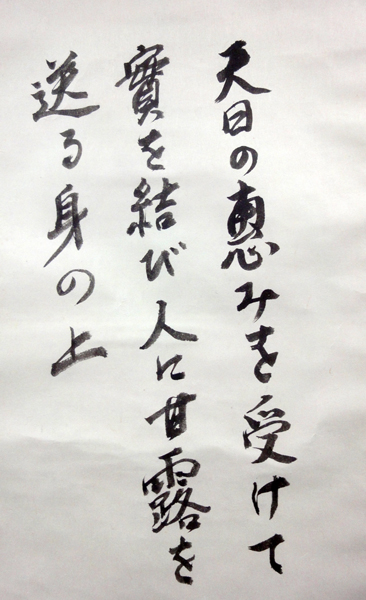 天日の恵みを受けて
實を結び人に甘露を
送る身の上